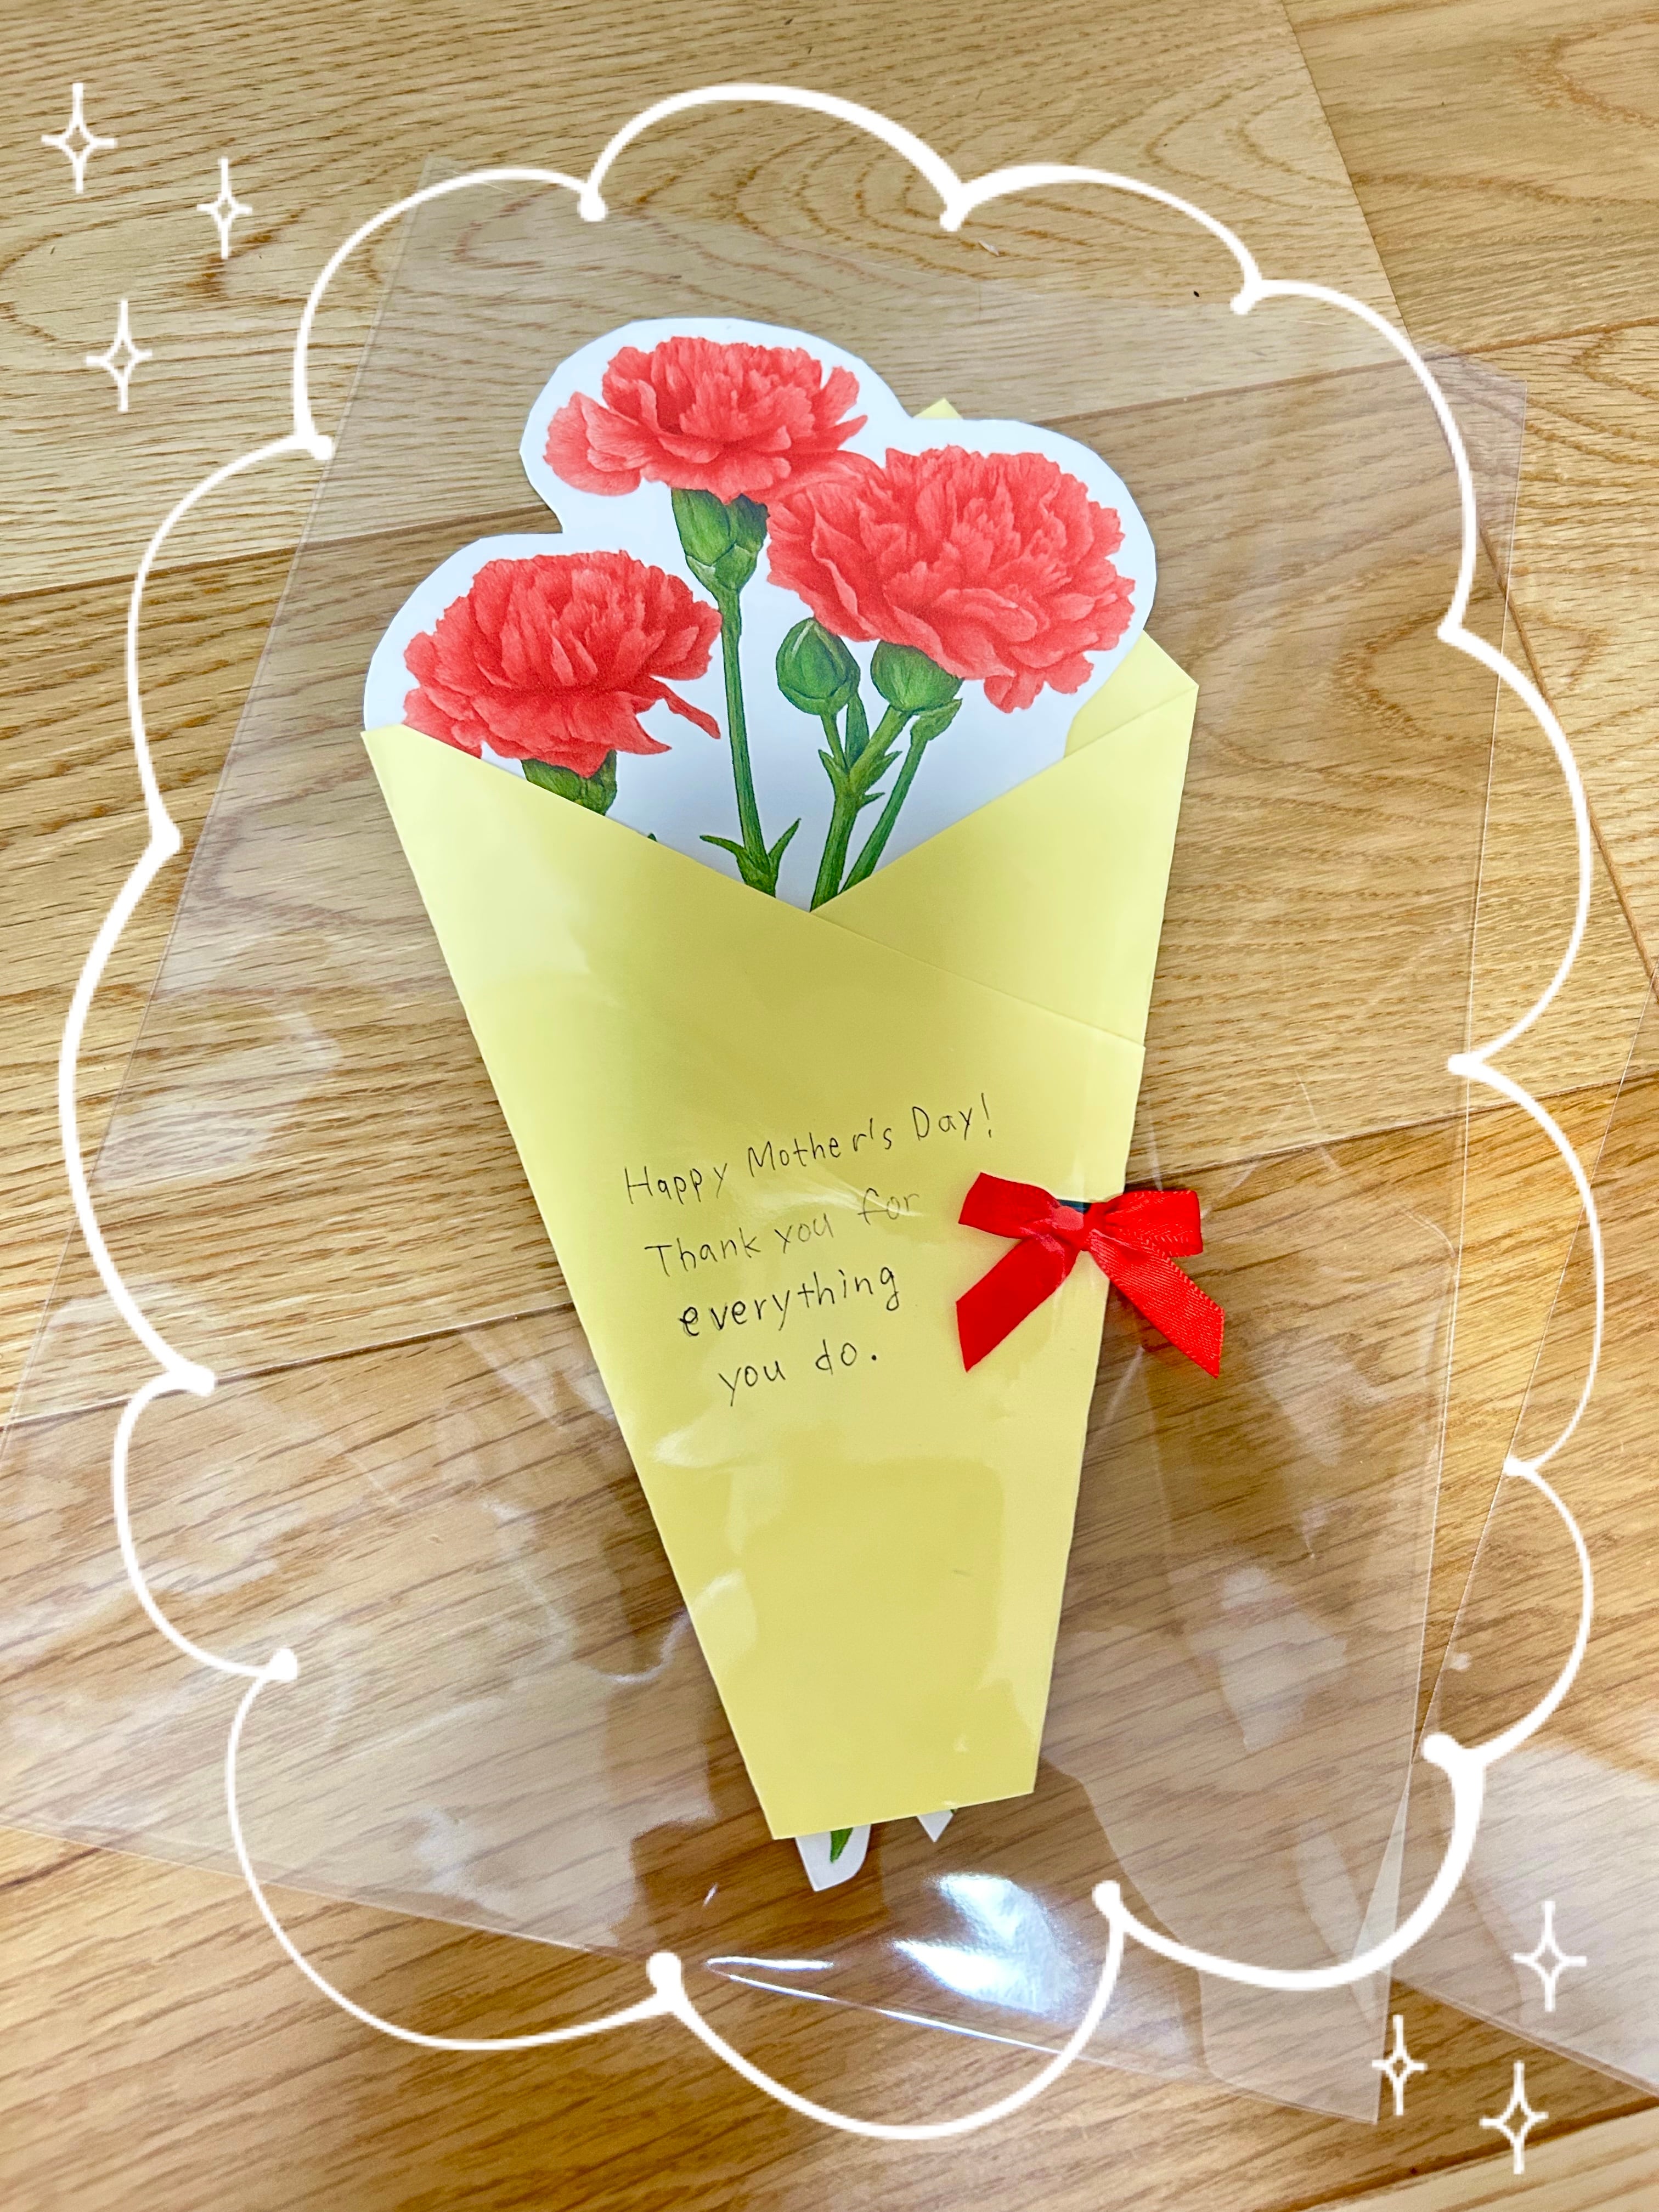 Happy Mother's Day!
Thank you for
everything
you do.